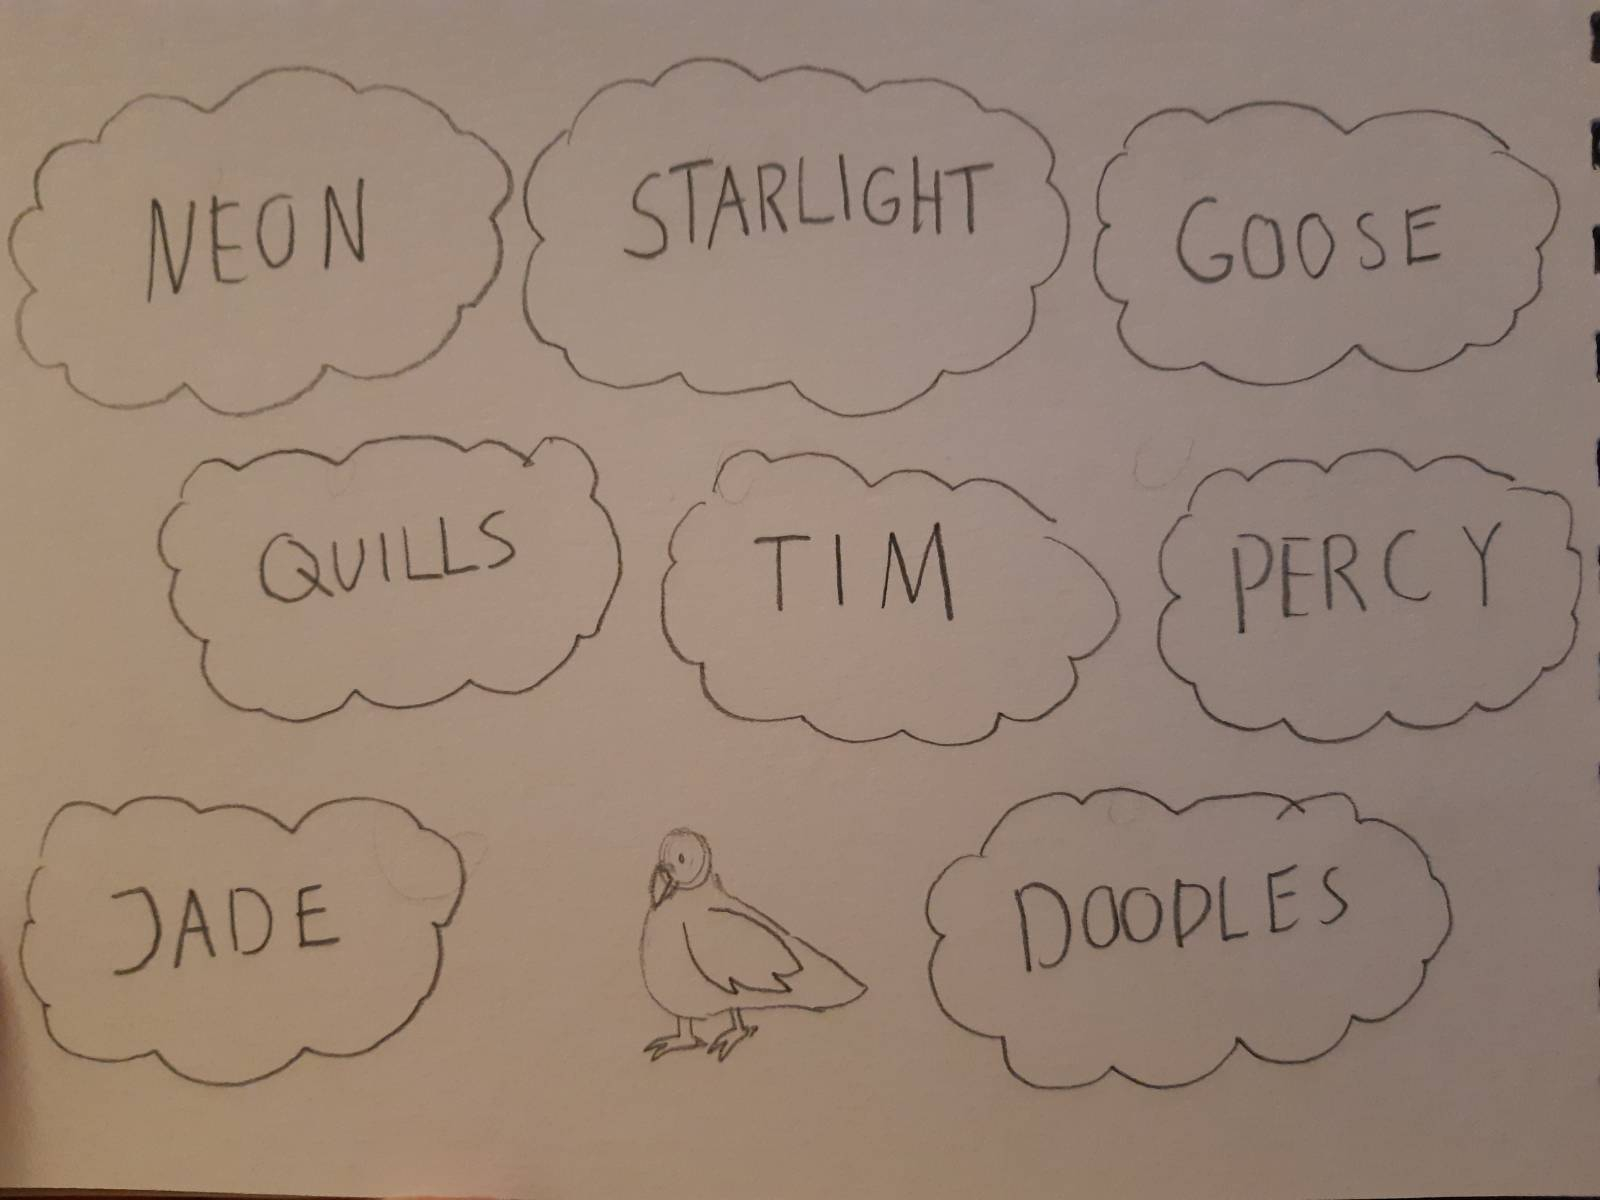 NEON
STARLIGHT
GOOSE
QUILLS
TIM
PERCY
JADE
DOODLES